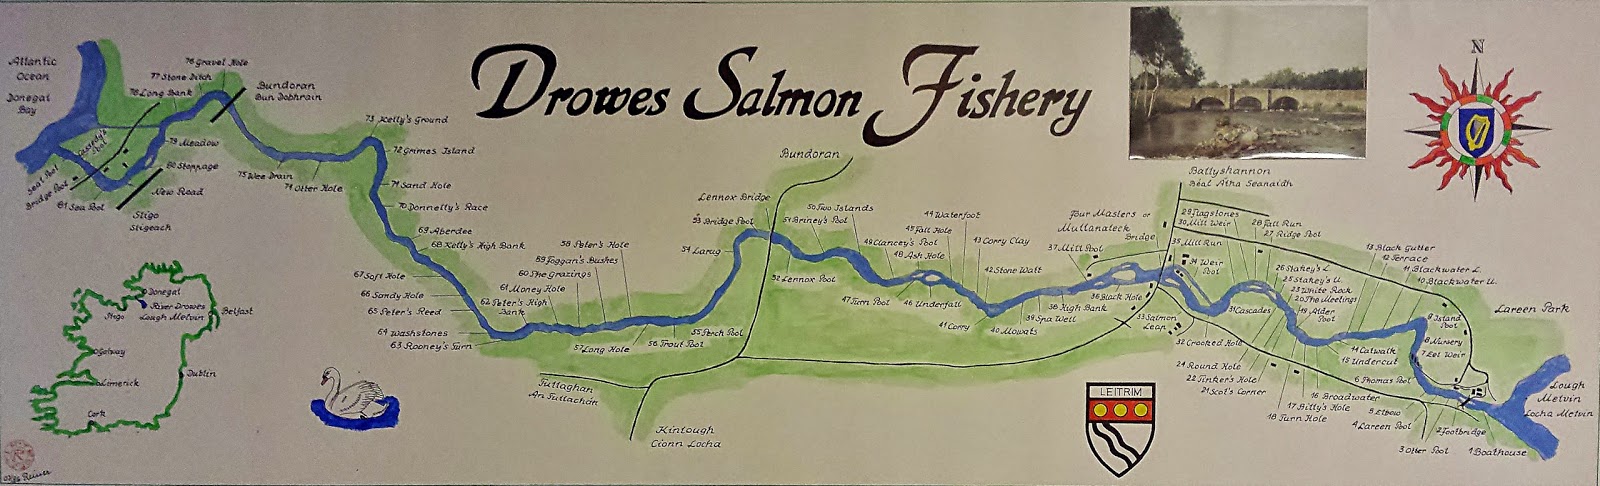 Drowes Salmon Fishery
N
Atlantic
Ocean
Donegal
Bay
76 Gravel Hole
77 Stone Ditch
78 Long Bank
Bundoran
Bun Dobhrain
Cassidy's
Pool
79 Meadow
80 Stoppage
Seal Pool
Bridge Pool
81 Sea Pool
New Road
Sligo
Sligeach
75 Wee Drain
74 Otter Hole
73 Kelly's Ground
72 Grimes Island
71 Sand Hole
70 Donnelly's Race
69 Aberdee
68 Kelly's High Bank
67 Soft Hole
66 Sandy Hole
65 Peter's Reed
64 Washstones
63 Rooney's Turn
62 Peter's High
Bank
61 Money Hole
60 The Grazings
59 Foggan's Bushes
58 Peter's Hole
57 Long Hole
56 Trout Pool
55 Perch Pool
54 Larug
53 Bridge Pool
Lennox Bridge
Bundoran
52 Lennox Pool
51 Briney's Pool
50 Two Islands
49 Clancey's Pool
48 Ash Hole
47 Turn Pool
46 Underfall
45 Fall Hole
44 Waterfoot
43 Corry Clay
42 Stone Wall
41 Corry
40 Mowats
39 Spa Well
38 High Bank
37 Mill Pool
36 Black Hole
Four Masters or
Mullanaleck
Bridge
Ballyshannon
Béal Átha Seanaidh
35 Mill Run
34 Weir
Pool
33 Salmon
Leap
32 Crooked Hole
31 Cascades
30 Mill Weir
29 Flagstones
28 Fall Run
27 Ridge Pool
26 Stakey's L.
25 Stakey's U.
24 Round Hole
23 White Rock
22 Tinker's Hole
21 Scot's Corner
20 The Meetings
19 Alder
Pool
18 Turn Hole
17 Billy's Hole
16 Broadwater
15 Undercut
14 Catwalk
13 Black Gutter
12 Terrace
11 Blackwater L.
10 Blackwater U.
9 Island
Pool
8 Nursery
7 Eel Weir
6 Thomas Pool
5 Elbow
4 Lareen Pool
3 Otter Pool
2 Footbridge
1 Boathouse
Lareen Park
Lough
Melvin
Locha Melvin
Tullaghan
An Tullachán
Kinlough
Cionn Locha
LEITRIM
Donegal
River Drowes
Lough Melvin
Sligo
Belfast
Galway
Dublin
Limerick
Cork
R